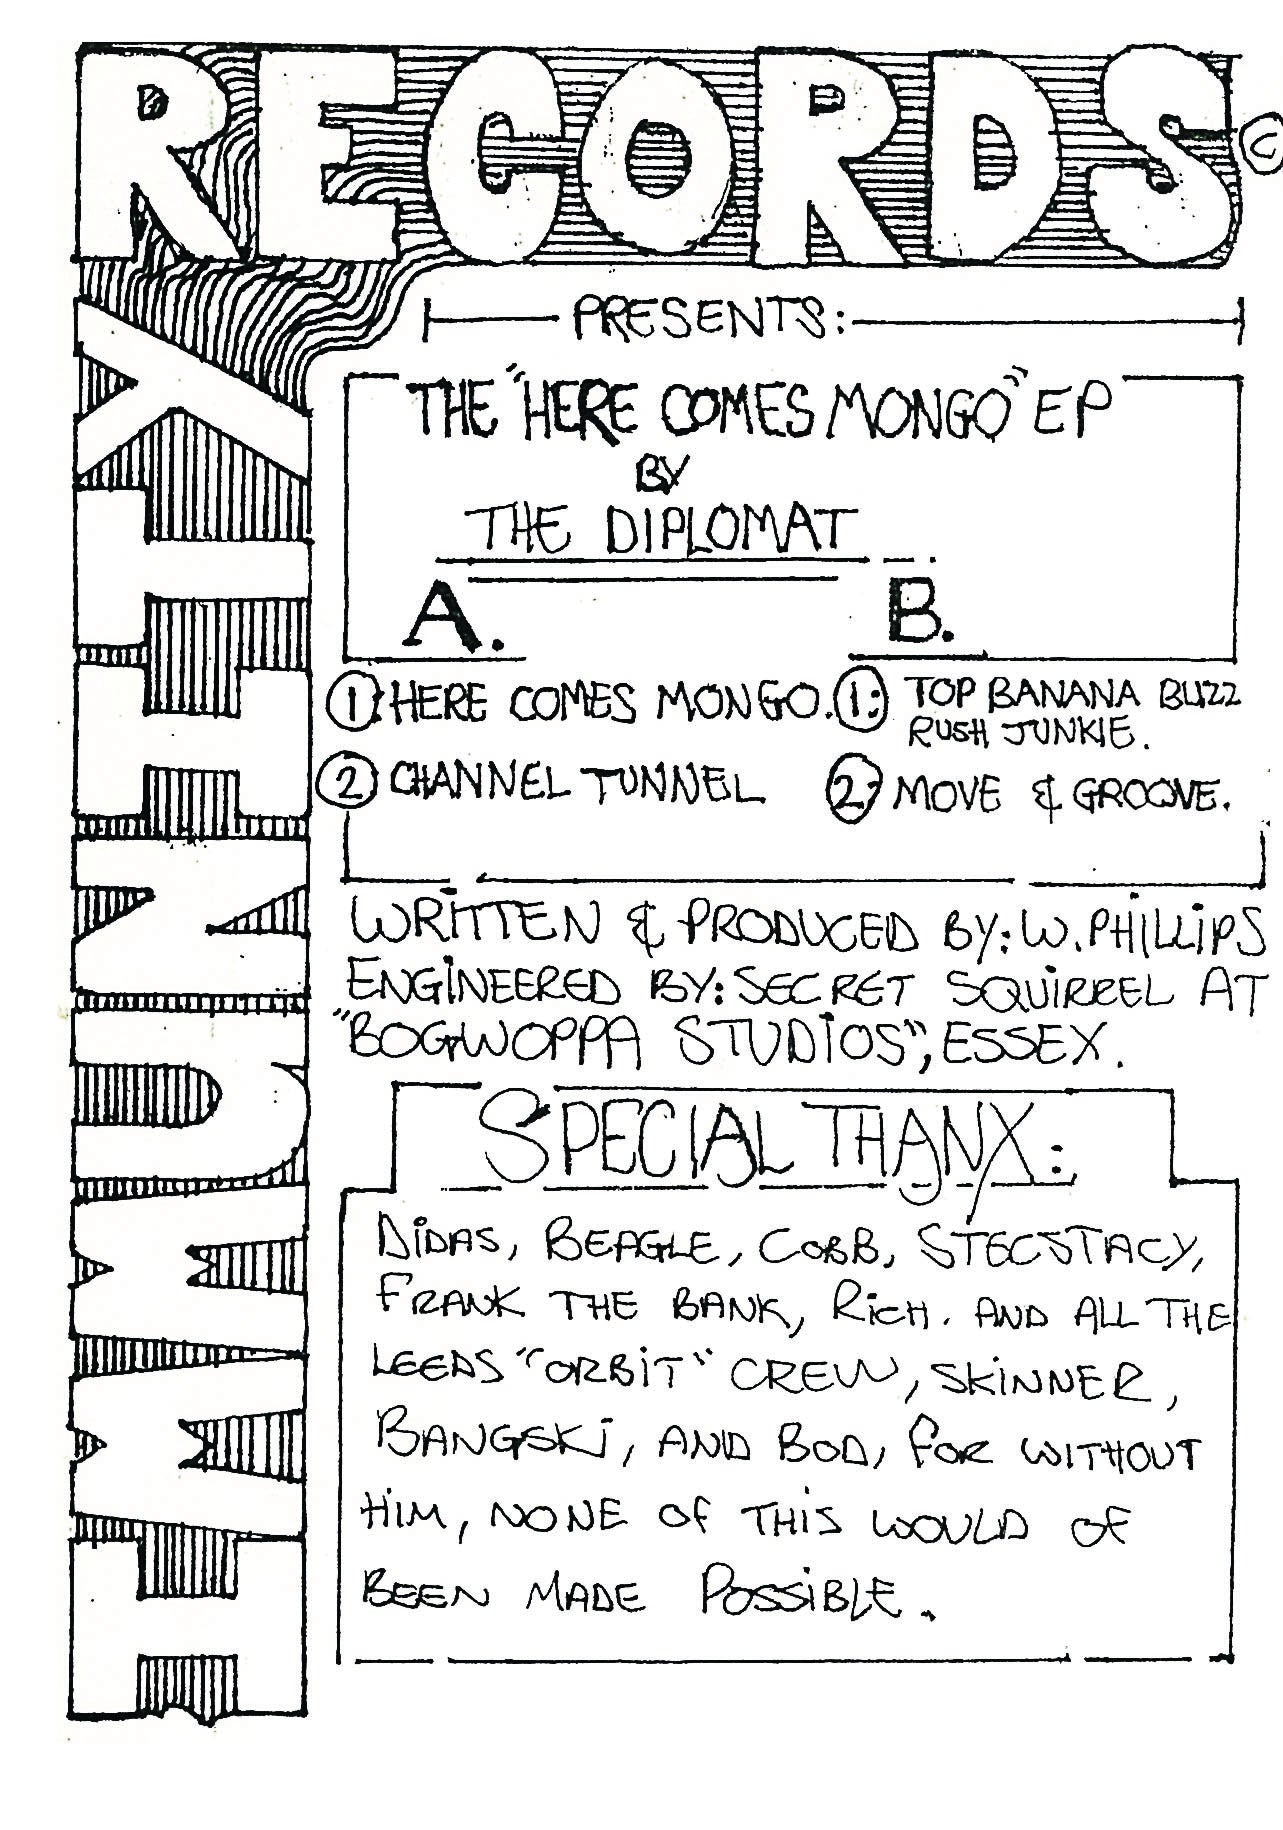 RECORDS. C
IMMUNITY
PRESENTS:
THE "HERE COMES MONGO" EP
BY
THE DIPLOMAT
A. B.
1: HERE COMES MONGO. 1: TOP BANANA BUZZ
RUSH JUNKIE.
2 CHANNEL TUNNEL 2: MOVE & GROOVE.
WRITTEN & PRODUCED BY: W. PHILLIPS
ENGINEERED BY: SECRET SQUIRREL AT
"BOGWOPPA STUDIOS", ESSEX.
SPECIAL THANX:
DIDAS, BEAGLE, COBB, STECSTACY,
FRANK THE BANK, RICH. AND ALL THE
LEEDS "ORBIT" CREW, SKINNER,
BANGSKI, AND BOD, FOR WITHOUT
HIM, NONE OF THIS WOULD OF
BEEN MADE POSSIBLE.